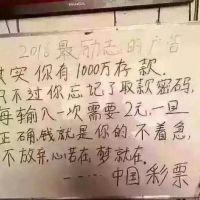 2018最励志的广告
其实你有1000万存款.
只不过你忘记了取款密码,
每输入一次需要2元,一旦
正确,钱就是你的.不着急,
不放弃,心若在,梦就在.
-----中国彩票